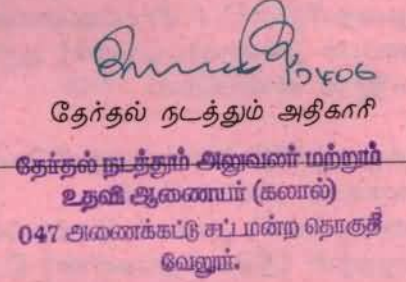 12406
தேர்தல் நடத்தும் அதிகாரி
தேர்தல் நடத்தும் அலுவலர் மற்றும்
உதவி ஆணையர் (கலால்)
047 அணைக்கட்டு சட்டமன்ற தொகுதி
வேலூர்.